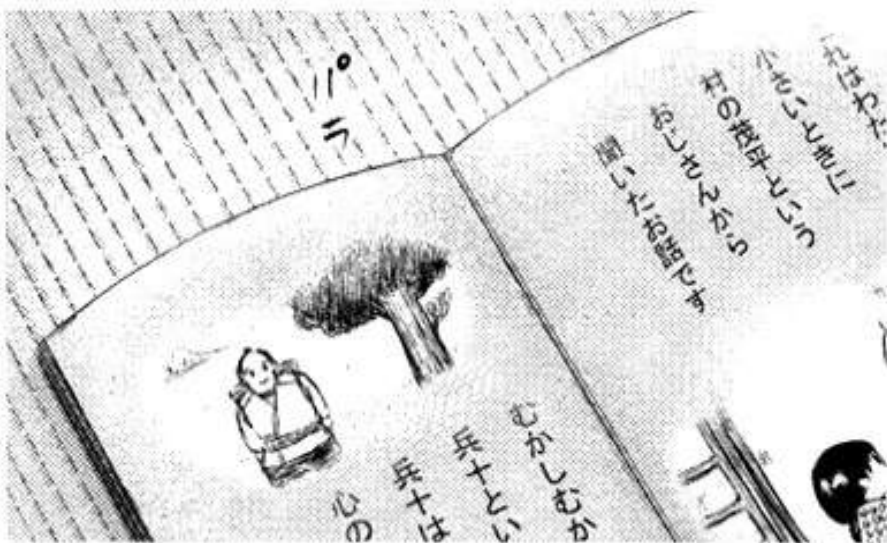 パラ
れはわた
小さいときに
村の茂平という
おじさんから
聞いたお話です
むかしむか
兵十とい
兵十は
心の